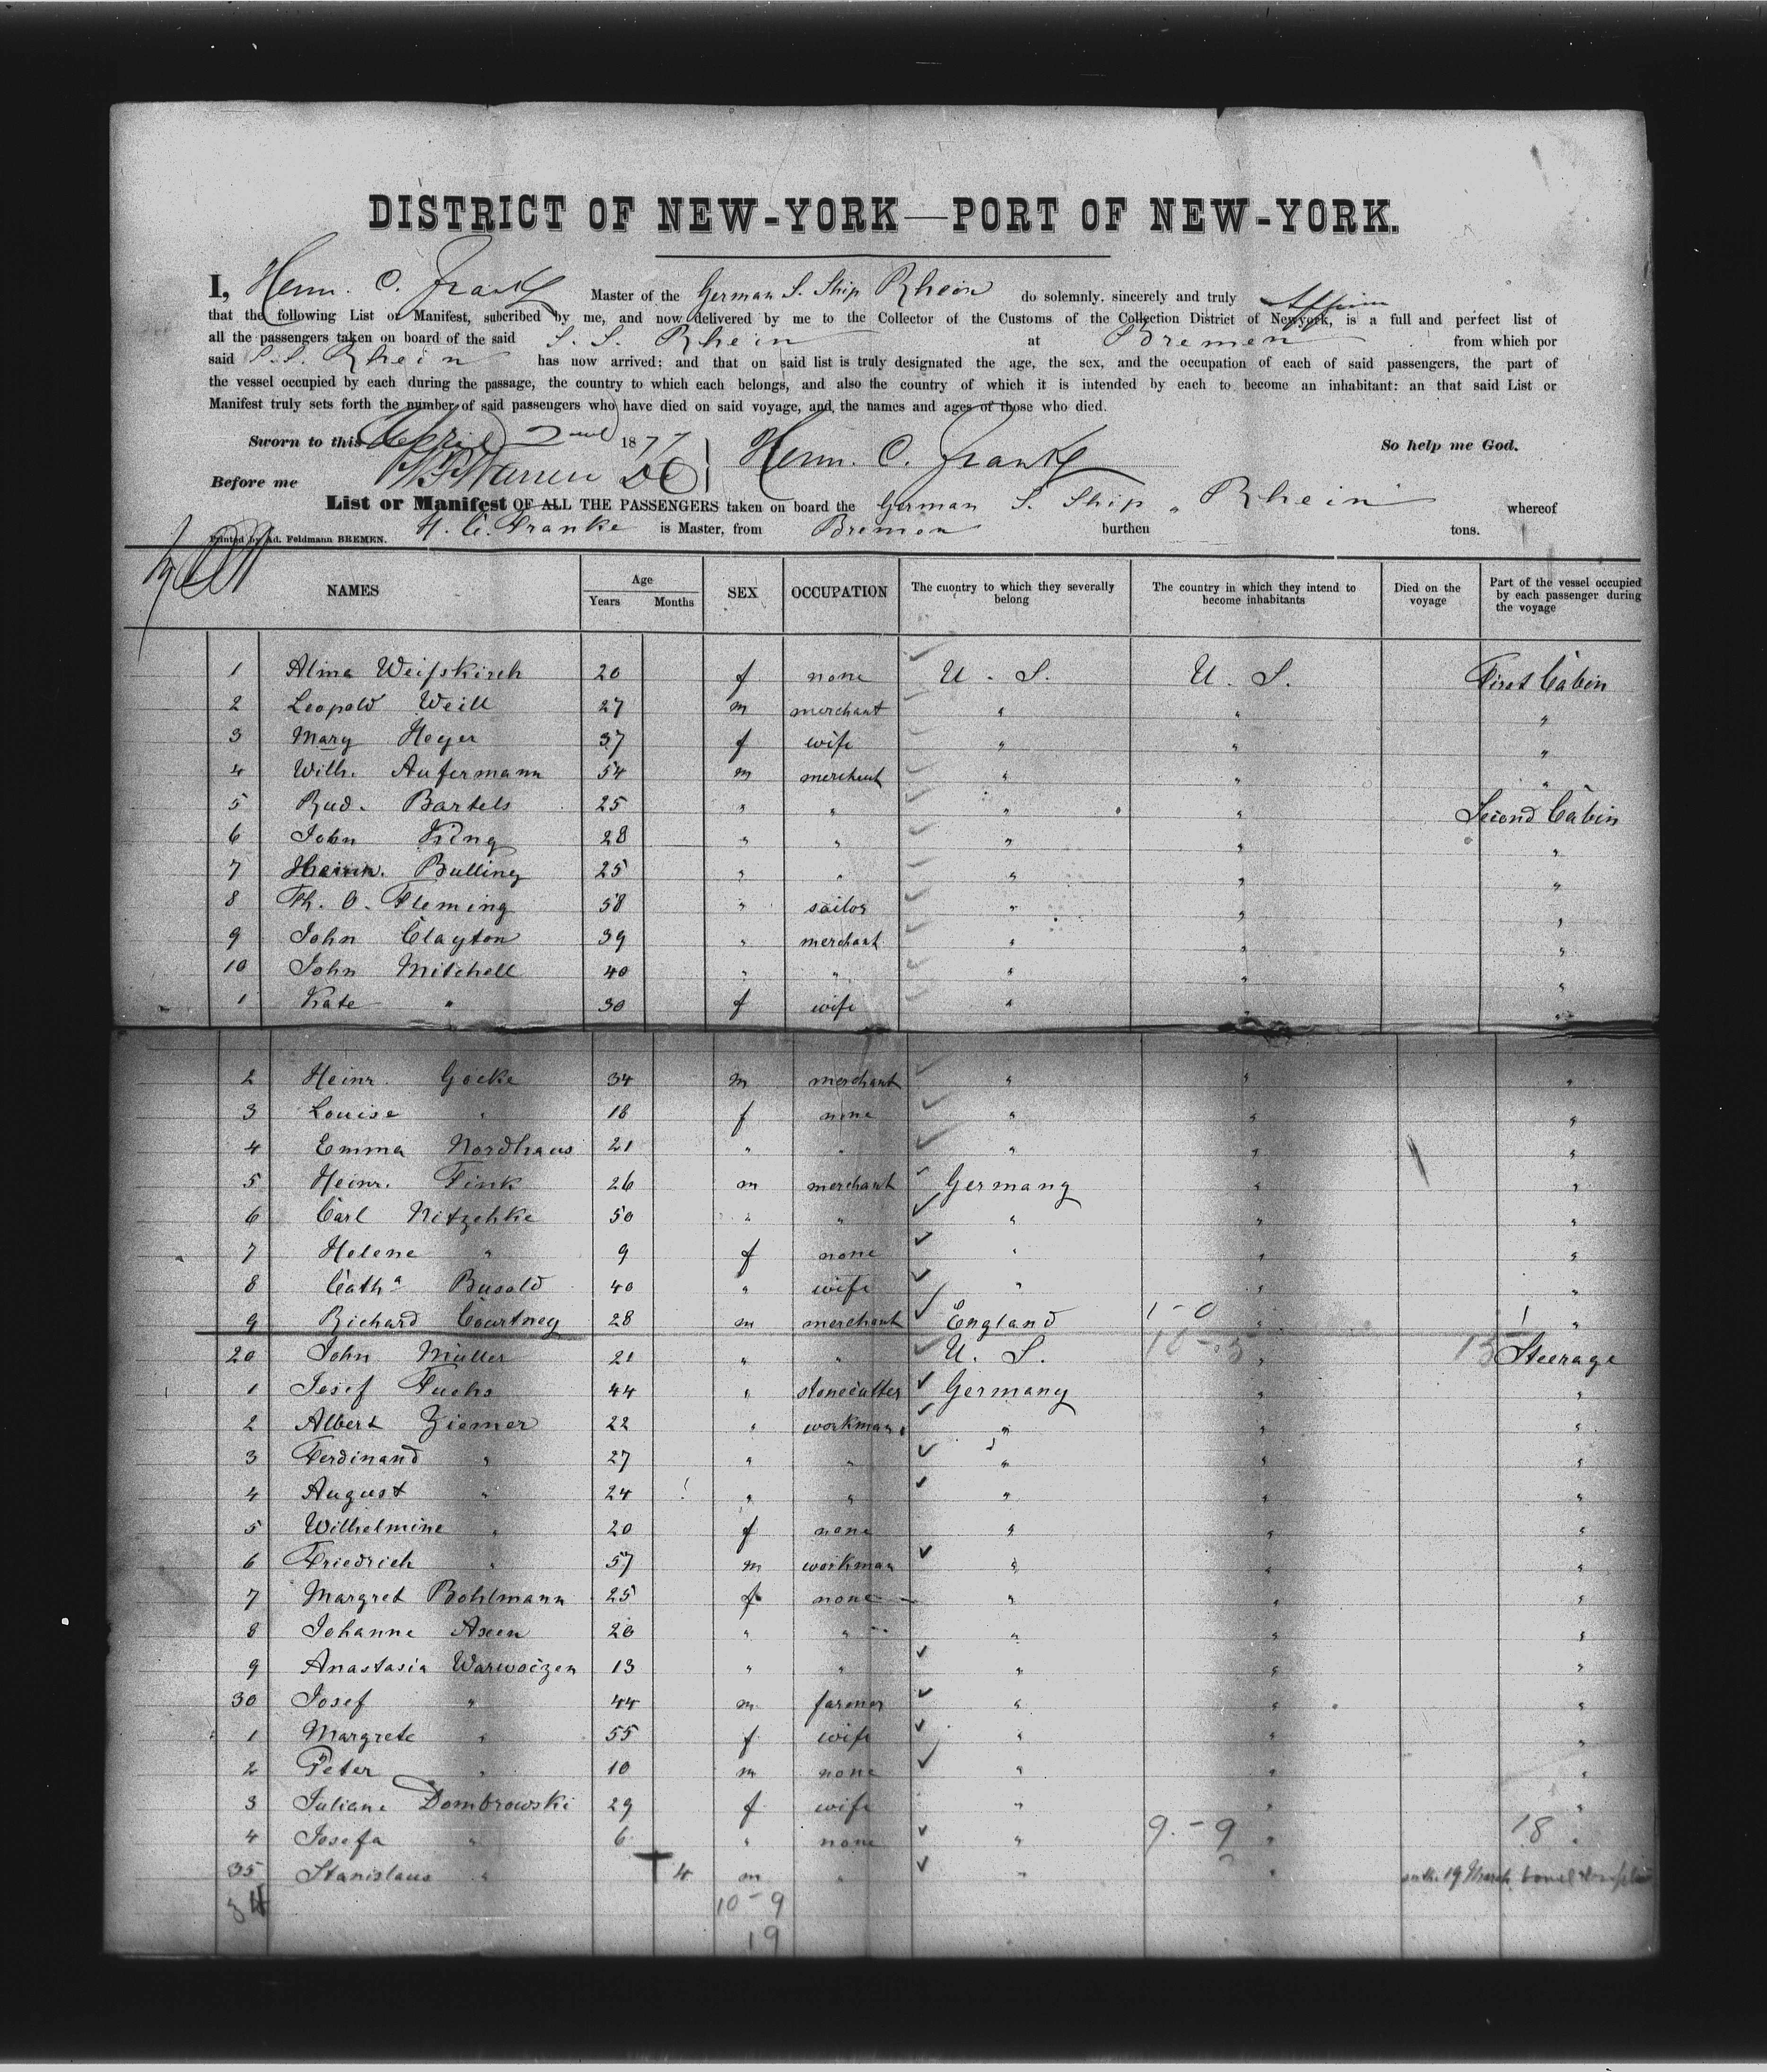 DISTRICT OF NEW-YORK—PORT OF NEW-YORK.
I, Herm. C. Franke Master of the German S. Ship Rhein do solemnly, sincerely and truly Affirm
that the following List or Manifest, subcribed by me, and now delivered by me to the Collector of the Customs of the Collection District of Newyork, is a full and perfect list of
all the passengers taken on board of the said S. S. Rhein at Bremen from which por
said S. S. Rhein has now arrived; and that on said list is truly designated the age, the sex, and the occupation of each of said passengers, the part of
the vessel occupied by each during the passage, the country to which each belongs, and also the country of which it is intended by each to become an inhabitant: an that said List or
Manifest truly sets forth the number of said passengers who have died on said voyage, and the names and ages of those who died.
Sworn to this April 2nd 1877 Herm. C. Franke So help me God.
Before me
List or Manifest OF ALL THE PASSENGERS taken on board the German S. Ship „ Rhein" whereof
H. C. Franke is Master, from Bremen burthen tons.
Printed by Ad. Feldmann BREMEN.
NAMES Age Years Months SEX OCCUPATION The cuontry to which they severally belong The country in which they intend to become inhabitants Died on the voyage Part of the vessel occupied by each passenger during the voyage
1 Alma Weifskirch 20 f none U. S. U. S. First Cabin
2 Leopold Weill 27 m merchant " " "
3 Mary Heyer 37 f wife " " "
4 Wilh. Aufermann 54 m merchant " " "
5 Rud. Bartels 25 " " " " Second Cabin
6 John King 28 " " " " "
7 Heinr. Bulling 25 " " " " "
8 Th. O. Fleming 58 " sailor " " "
9 John Clayton 39 " merchant " " "
10 John Mitchell 40 " " " " "
1 Kate " 30 f wife " "
2 Heinr. Gocke 34 m merchant " " "
3 Louise " 18 f none " " "
4 Emma Nordhaus 21 " " " " "
5 Heinr. Fink 26 m merchant Germany " "
6 Carl Nitzchke 50 " " " " "
7 Helene " 9 f none " " "
8 Catha Busold 40 " wife " " "
9 Richard Courtney 28 m merchant England 1-0 " 1 "
20 John Müller 21 " " U. S. " Steerage
1 Josef Fuchs 44 " stonecutter Germany " "
2 Albert Ziemer 22 " workman " " "
3 Ferdinand " 27 " " " " "
4 August " 24 " " " " "
5 Wilhelmine " 20 f none " " "
6 Friedrich " 57 m workman " " "
7 Margret Bohlmann 25 f none " " "
8 Johanne Axen 20 " " " " "
9 Anastasia Warwoizen 13 " " " " "
30 Josef " 44 m farmer " " "
1 Margrete " 55 f wife " " "
2 Peter " 10 m none " " "
3 Juliane Dombrowski 29 f wife " " "
4 Josefa " 6 " none " 9-9 " 18 "
35 Stanislaus " 4 m " " " 19 March
34 10-9
19